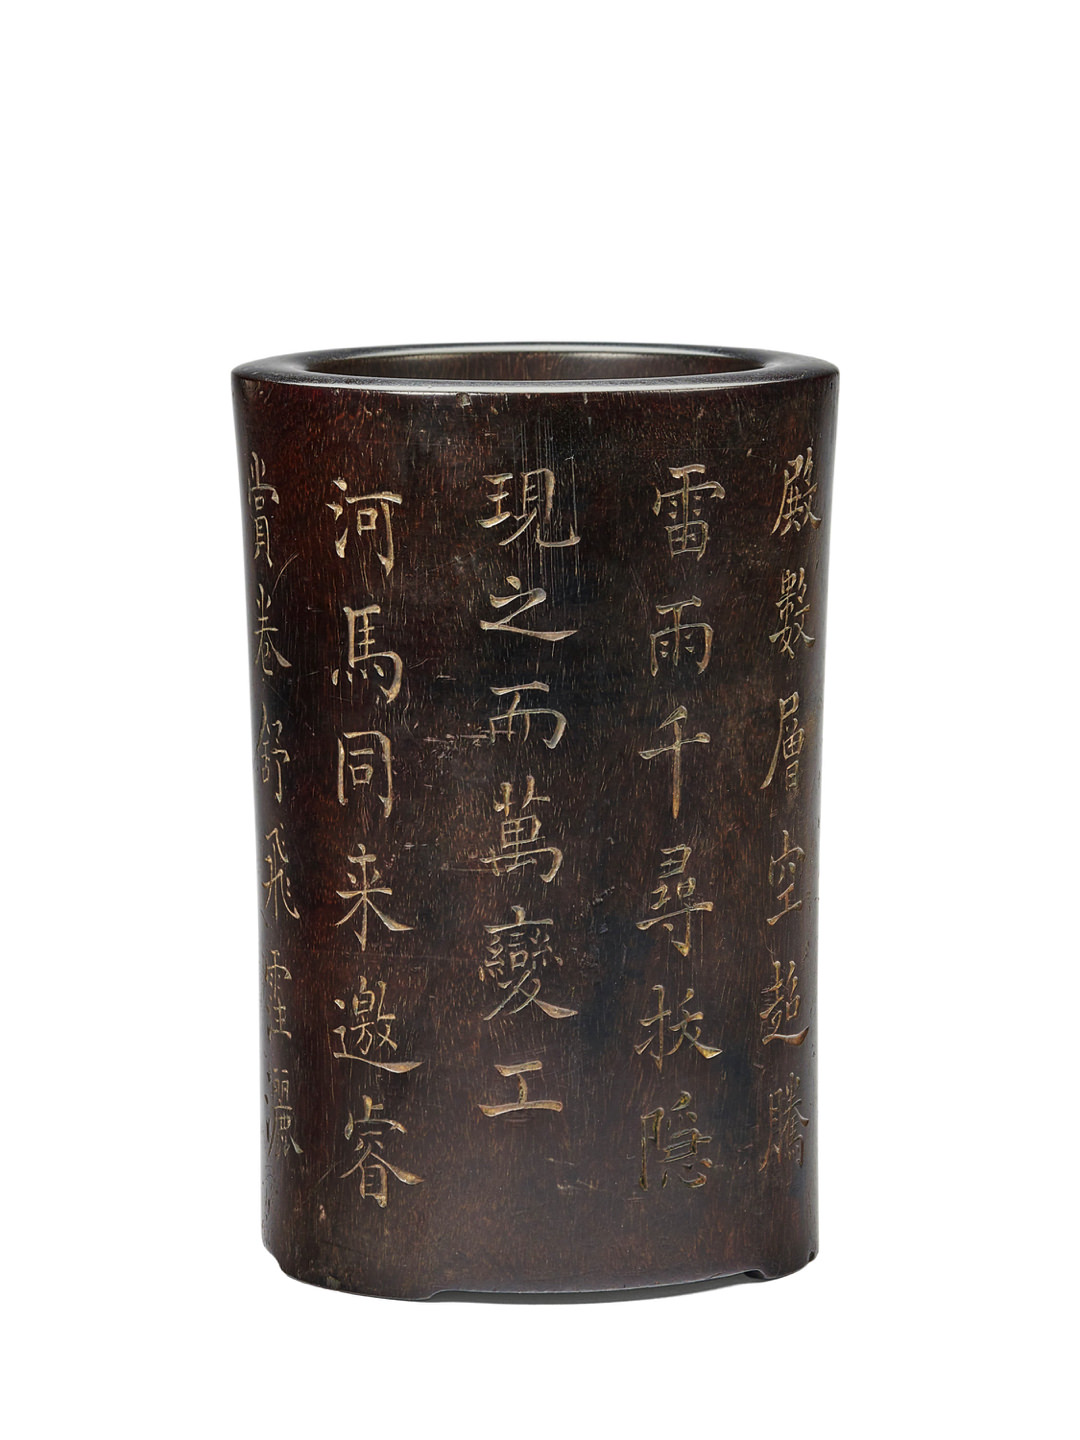 殿數層空超騰
雷雨千尋拔隱
現之而萬變工
河馬同来邀睿
賞卷舒飛灑